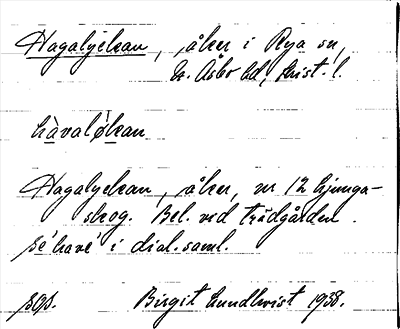 Hagalyckan, åker i Rya sn,
N. Åsbo hd, Krist. l.
hàvalø̀kan
Hagalyckan, åker, nr 12 Ljunga-
skog. Bel. vid trädgården.
se' have' i dial.saml.
sgs. Birgit Lundkvist 1938.